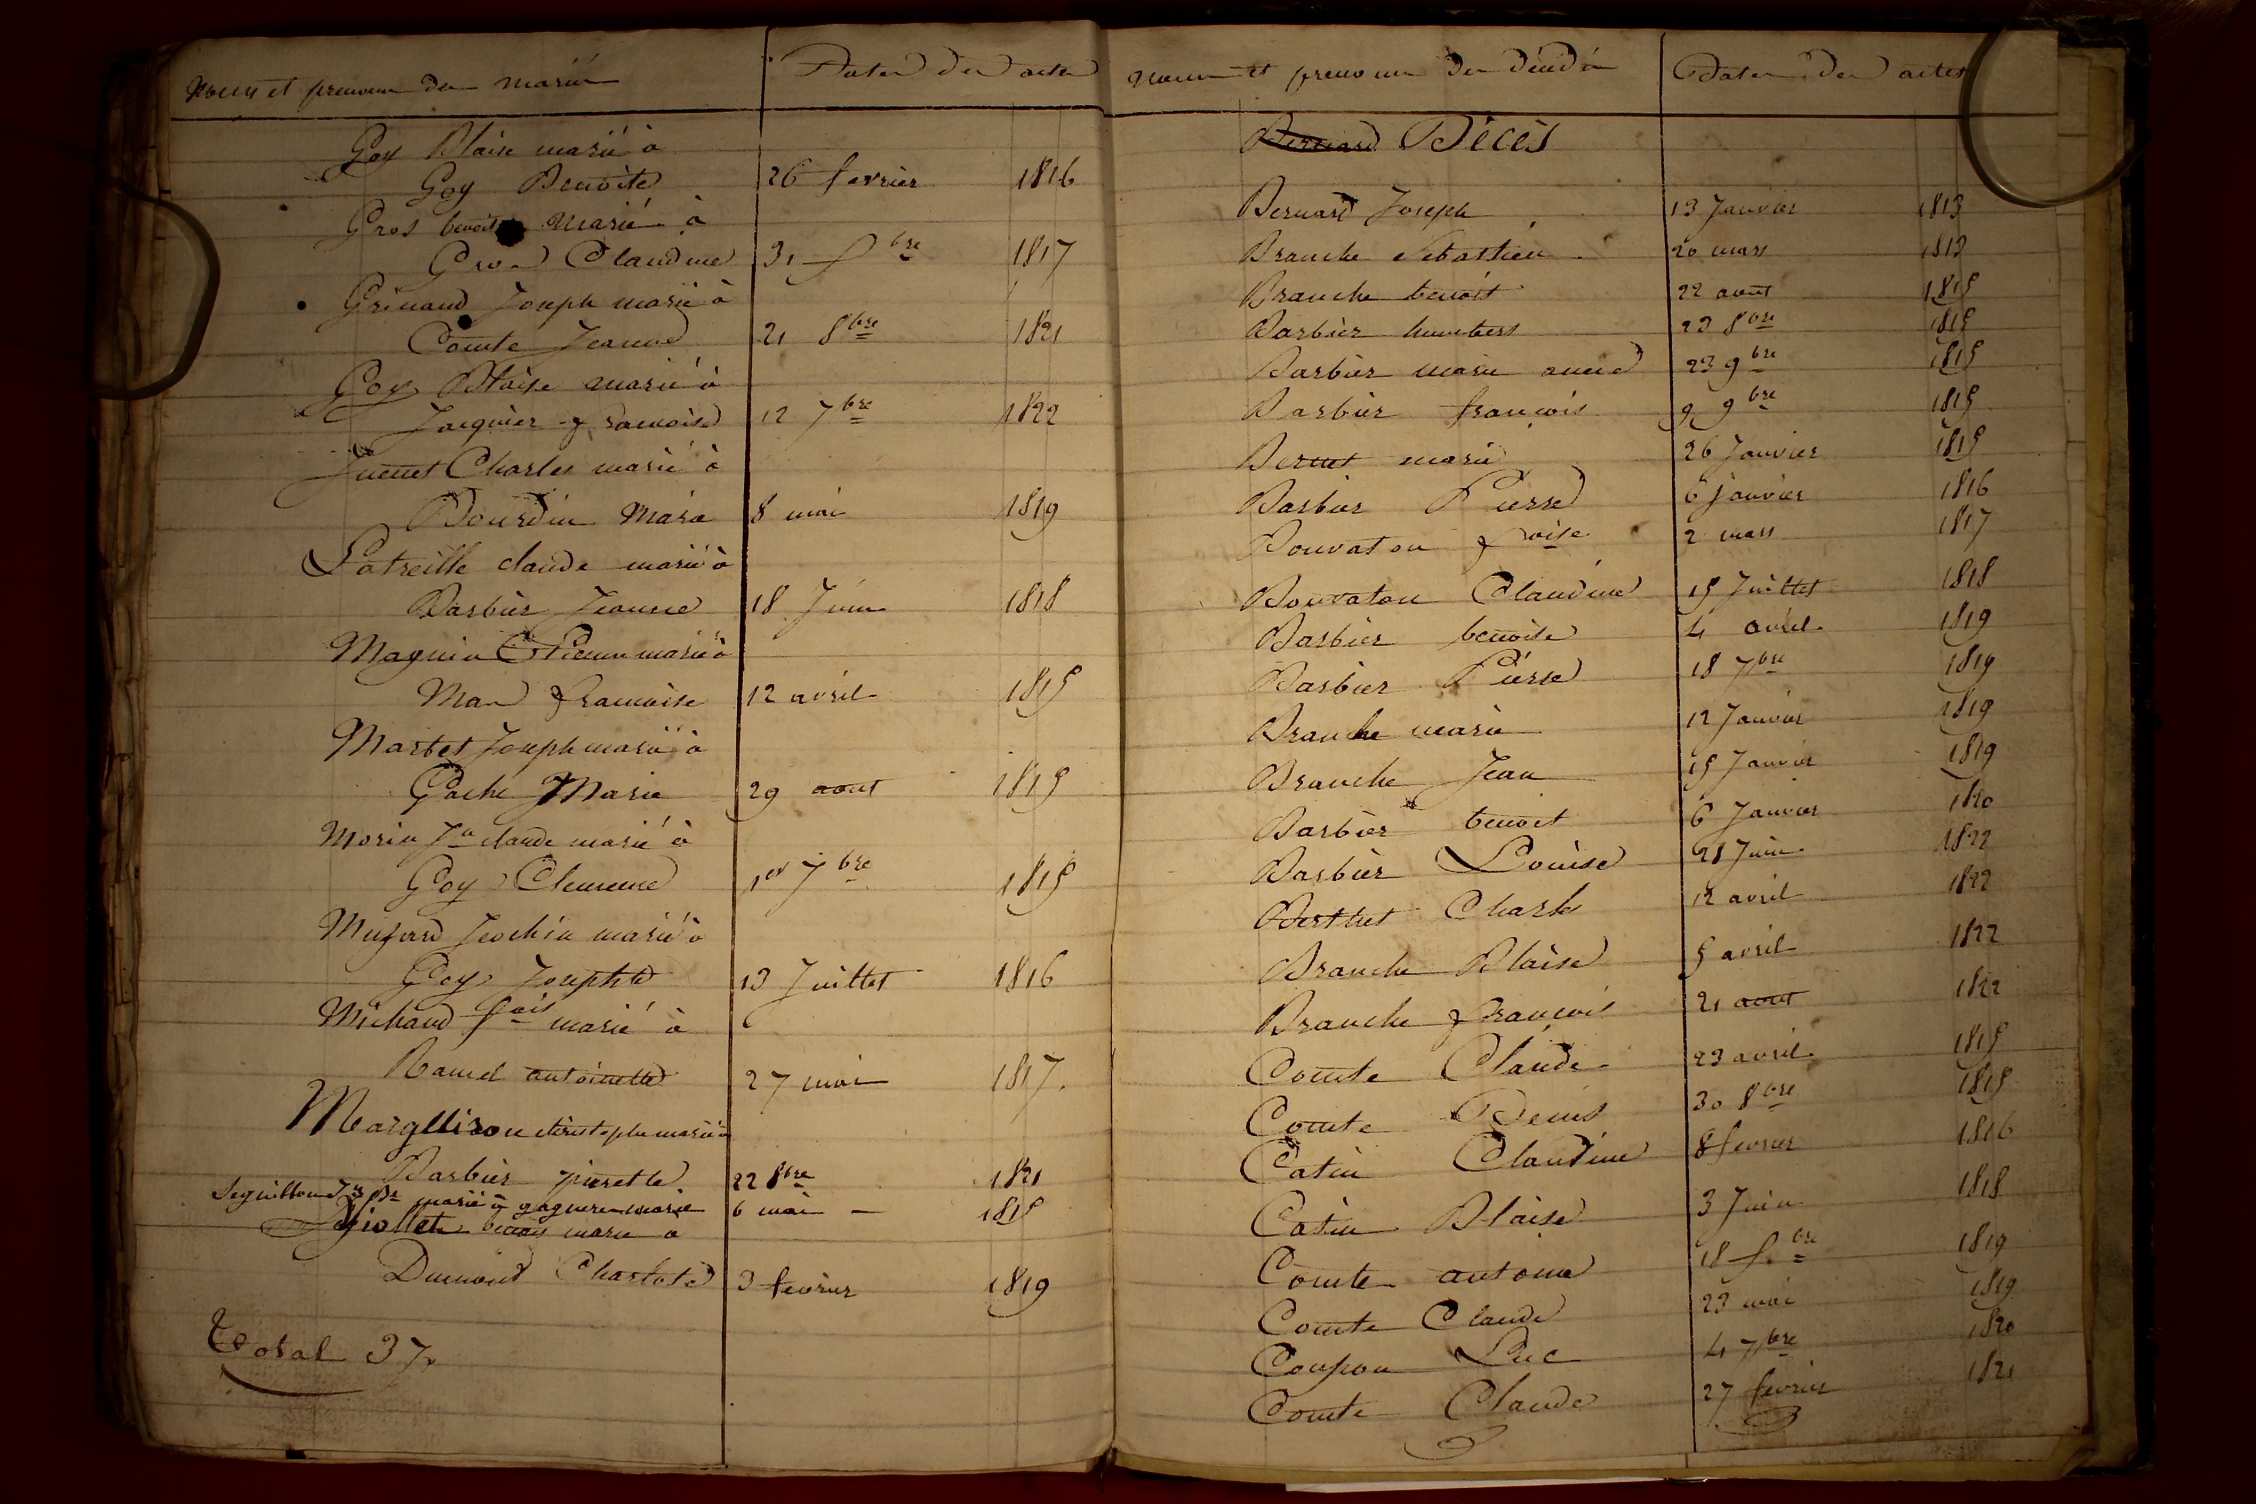 Noms et prenoms des mariés Dates des actes
Goy Blaise marié à
Goy Benoite 26 fevrier 1816
Gros benoit marié à
Gros Claudine 31 bre 1817
Grinand Joseph marié à
Comte Jeanne 21 8bre 1821
Goy Blaise marié à
Jacquier francoise 12 7bre 1822
Juenet Charles marié à
Bourdin Marie 8 mai 1819
Latreille claude marié à
Barbier Jeanne 18 Juin 1818
Magnin Etienne marié à
Mas francoise 12 avril 1815
Marbet Joseph marié à
Gache Marie 29 aout 1815
Morin Jn claude marié à
Goy 1er 7bre 1815
Jeochin marié à
Goy Josephte 13 Juillet 1816
Michaud fois marié à
Ramel antoinette 27 mai 1817
christophe marié à
Barbier pierrette 22 8bre 1821
marié à marie 6 mai 1815
benoit marié à
Dumond Charlote 3 fevrier 1819
Total 37
Noms et prenoms des décédés Dates des actes
Bernard Décès
Bernard Joseph 13 Janvier 1813
Branche Sebastien 20 mars 1813
Branche benoit 22 aout 1815
Barbier humbert 23 8bre 1815
Barbier marie 23 9bre 1815
Barbier françois 9 9bre 1815
Bernet marie 26 Janvier 1815
Barbier Pierre 6 Janvier 1816
Bouvaton foise 2 mars 1817
Bouvaton Claudine 15 Juillet 1818
Barbier benoite 4 avril 1819
Barbier Pierre 18 7bre 1819
Branche marie 12 Janvier 1819
Branche Jean 15 Janvier 1819
Barbier benoit 6 Janvier 1820
Barbier Louise 21 Juin 1822
Berthet Charles 12 avril 1822
Branche Blaise 5 avril 1822
Branche françois 21 aout 1822
Comte Claude 23 avril 1815
Comte Denis 30 8bre 1815
Catin Claudine 8 fevrier 1816
Catin Blaise 3 Juin 1818
Comte antoine 18 bre 1819
Comte Claude 23 mai 1819
Coupon Luc 4 7bre 1820
Comte Claude 27 fevrier 1821